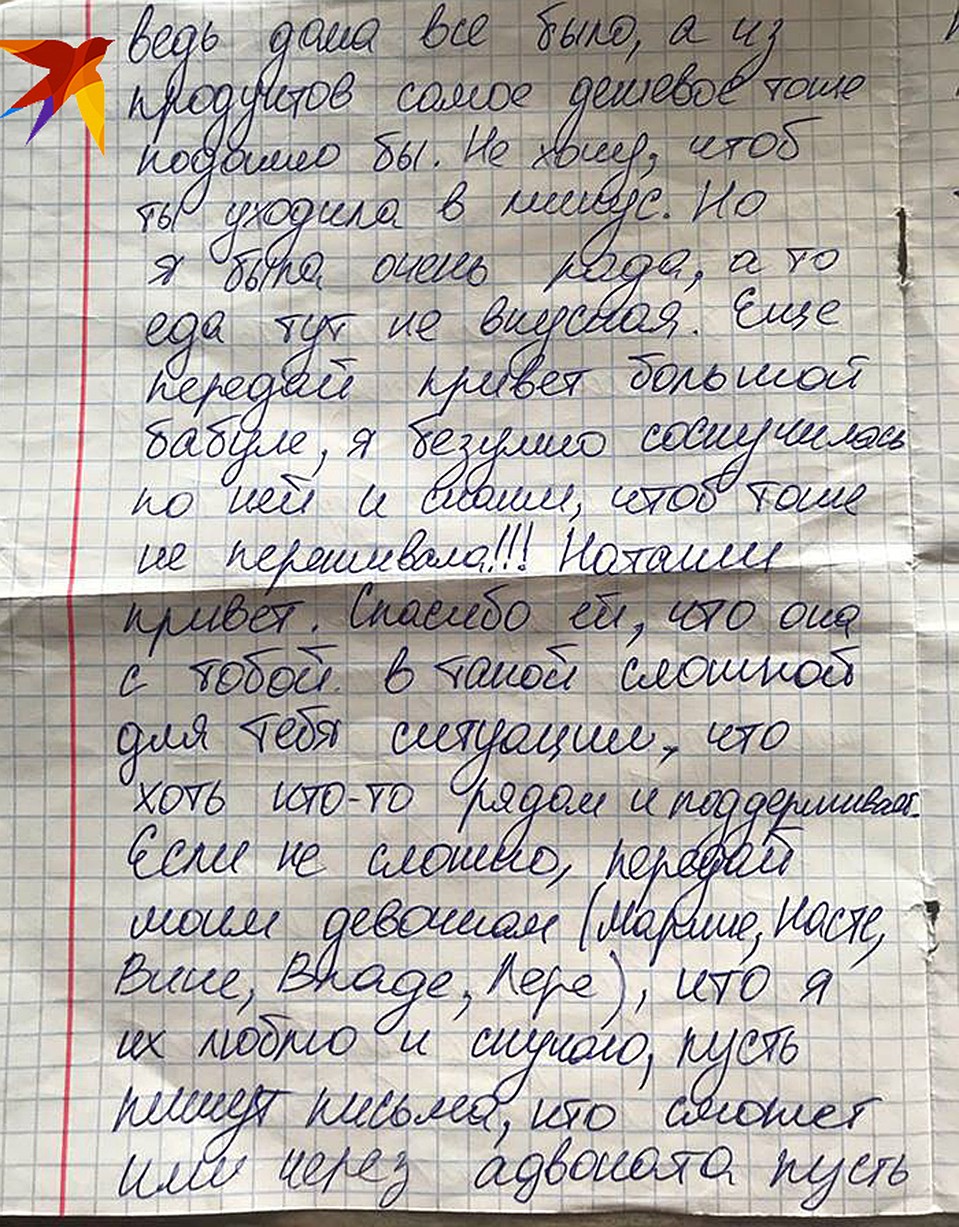 ведь дома все было, а из
продуктов самое дешевое тоже
подошло бы. Не хочу, чтоб
ты уходила в минус. Но
я была очень рада, а то
еда тут не вкусная. Еще
передай привет большой
бабуле, я безумно соскучилась
по ней и скажи, чтоб тоже
не переживала!!! Наташи
привет. Спасибо ей, что она
с тобой в такой сложной
для тебя ситуации, что
хоть кто-то рядом и поддерживает.
Если не сложно, передай
моим девочкам (Марине, Насте,
Вике, Владе, Лере), что я
их люблю и скучаю, пусть
пишут письма, кто сможет
или через адвоката пусть